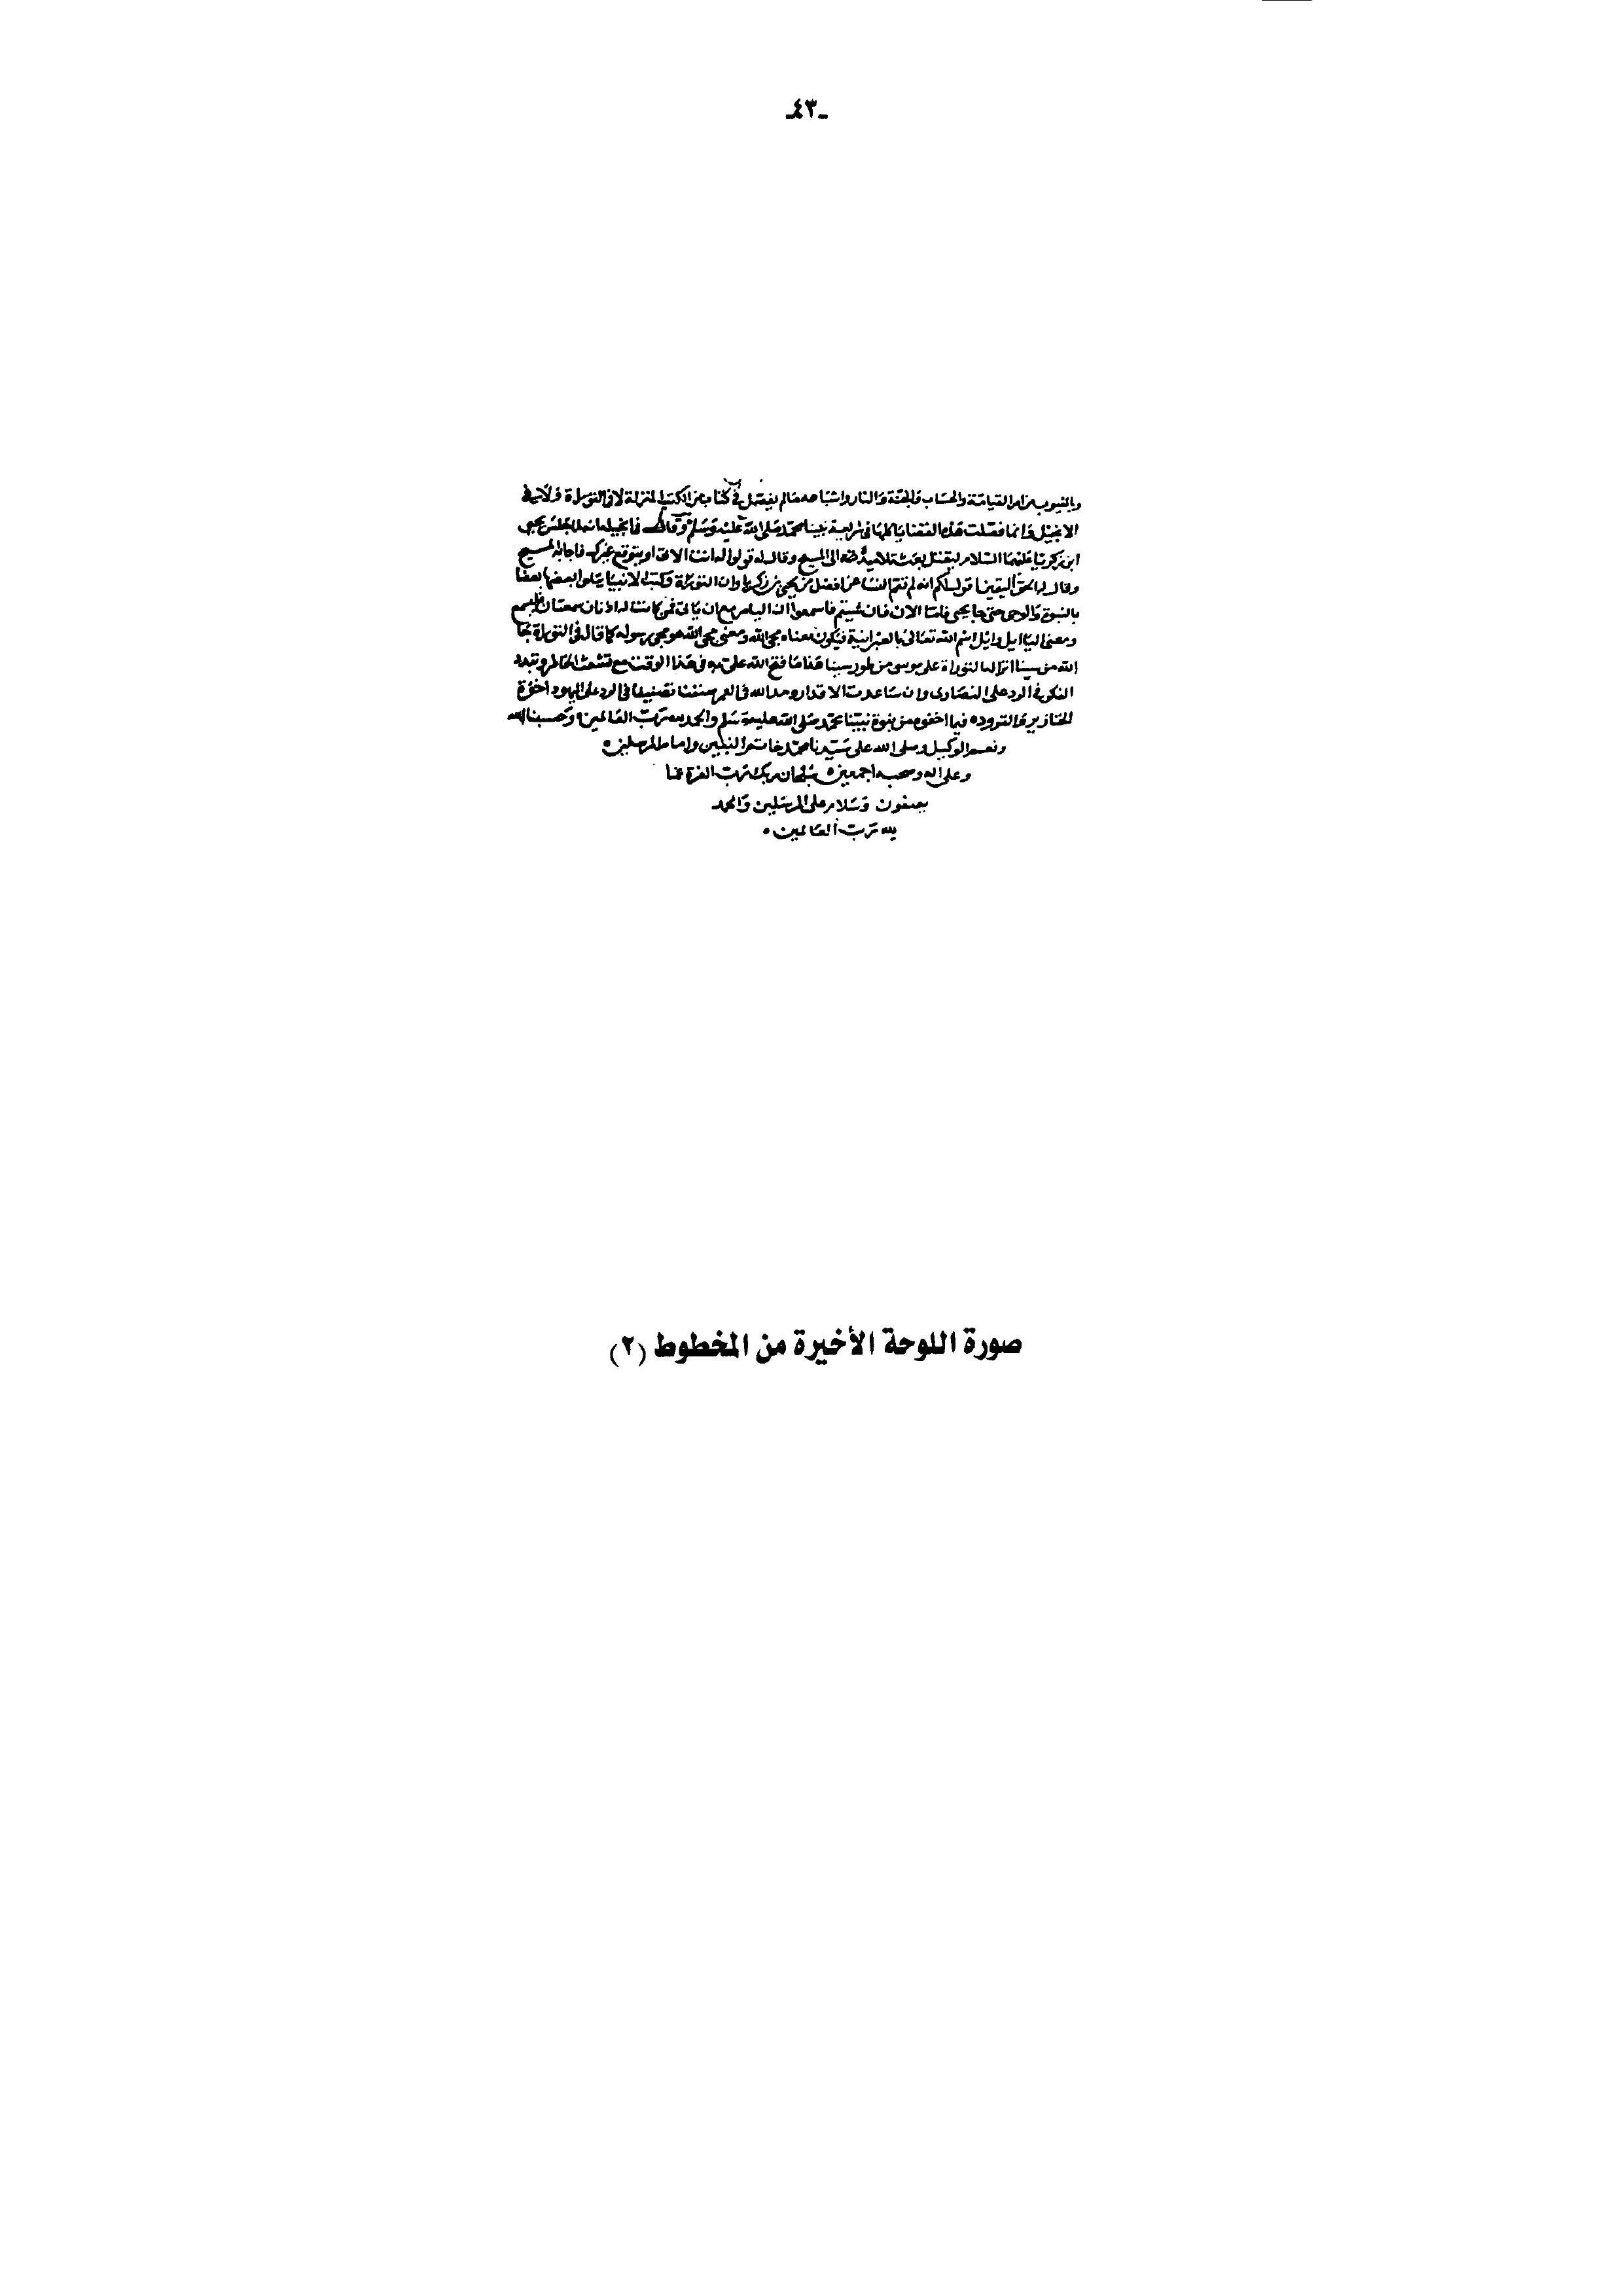 ـ٤٣ـ
وبالغيوب من امر القيامة والحساب والجنة والنار واشباهه مما لم يفصل في كتاب من الكتب المنزلة لا في التوراة ولا في
الانجيل وانما فصلت هذه القضايا كلها في شريعة نبينا محمد صلى الله عليه وسلم وقال في انجيله انه لما حبس يحيى
ابن زكريا عليهما السلام ليقتل بعث تلاميذه الى المسيح وقال له قولوا له انت الاتي او يتوقع غيرك فاجابه المسيح
وقال له الحق اليقين اقول لكم انه لم تقم النسا عن افضل من يحيى بن زكريا وان التوراة وكتب الانبيا يتلوا بعضها بعضا
بالنبوة والوحى حتى جا يحيى فاما الان فان شيتم فاسمعوا ان اليا مزمع ان ياتى فمن كانت له اذنان سمعتان فليسمع
ومعنى اليا ايل وايل اسم الله تعالى بالعبرانية فيكون معناه مجى الله ومعنى مجى الله هو مجى رسوله كما قال في التوراة جا
الله من سينا انزاله التوراة على موسى من طور سينا هذا ما فتح الله على به فى هذا الوقت مع تشعث الخاطر وتبدد
الفكر فى الرد على النصارى وان ساعدت الاقدار ومد الله فى العمر صنفنا تصنيفا فى الرد على اليهود اخوة
الخنازير والقرود فيما اخفوه من نبوة نبينا محمد صلى الله عليه وسلم والحمد لله رب العالمين وحسبنا الله
ونعم الوكيل وصلى الله على سيدنا محمد خاتم النبيين وامام المرسلين
وعلى اله وصحبه اجمعين سبحان ربك رب العزة عما
يصفون وسلام على المرسلين والحمد
لله رب العالمين
صورة اللوحة الأخيرة من المخطوط (٢)